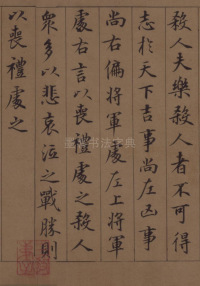 殺人夫樂殺人者不可得
志於天下吉事尚左凶事
尚右偏將軍處左上將軍
處右言以喪禮處之殺人
衆多以悲哀泣之戰勝則
以喪禮處之